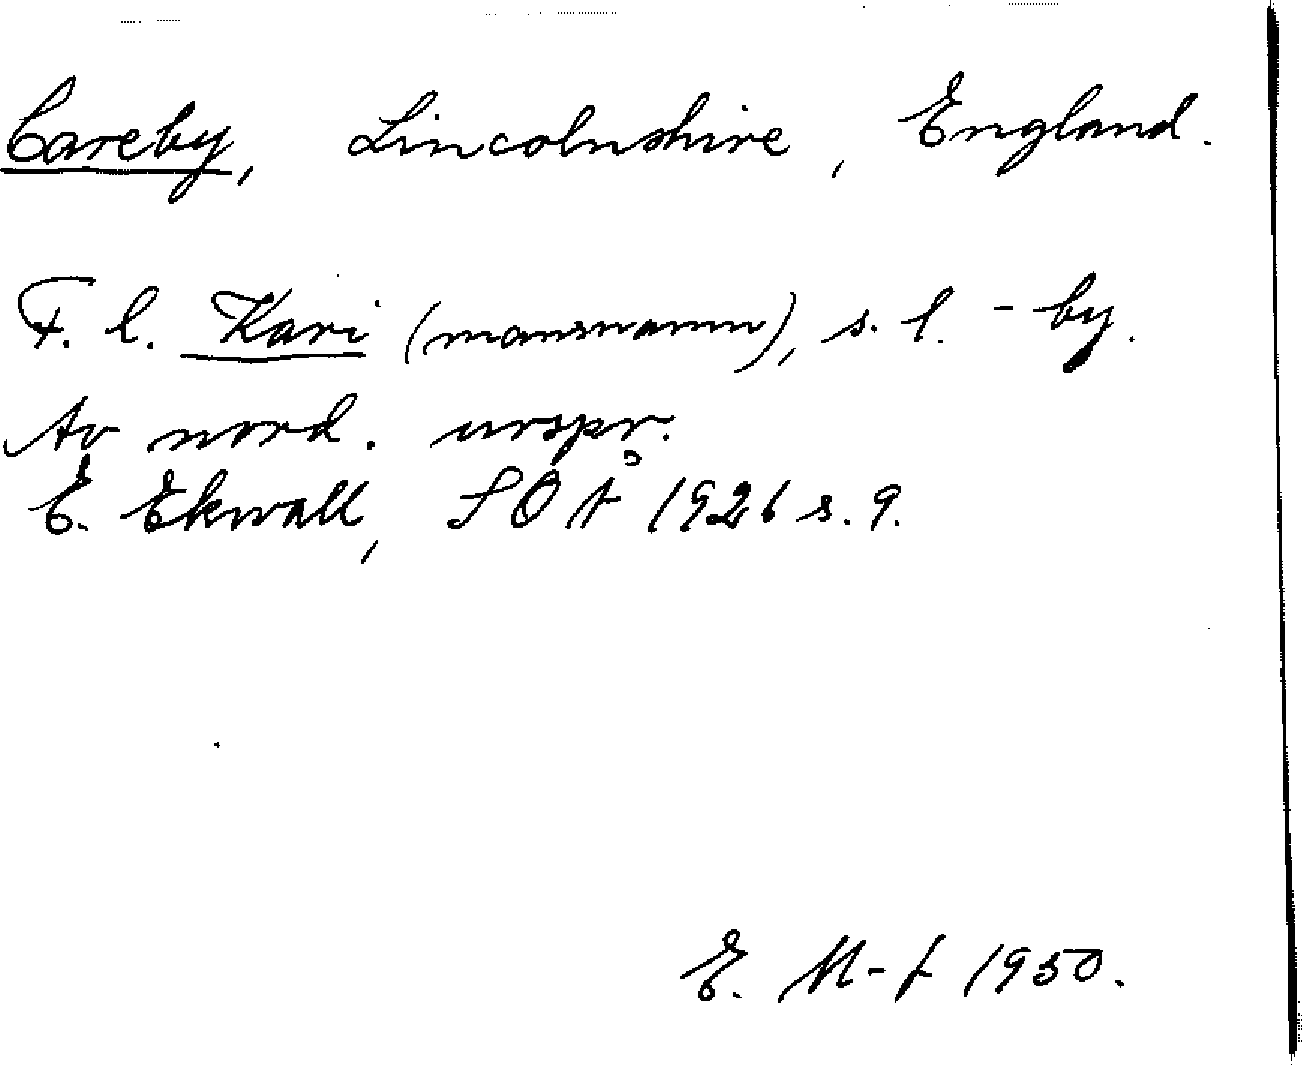 Careby, Lincolnshire, England.
F. l. Kari (mansnamn), s. l. -by.
Av nord. urspr.
E. Ekwall, SOÅ 1926 s. 9.
E. M-f 1950.